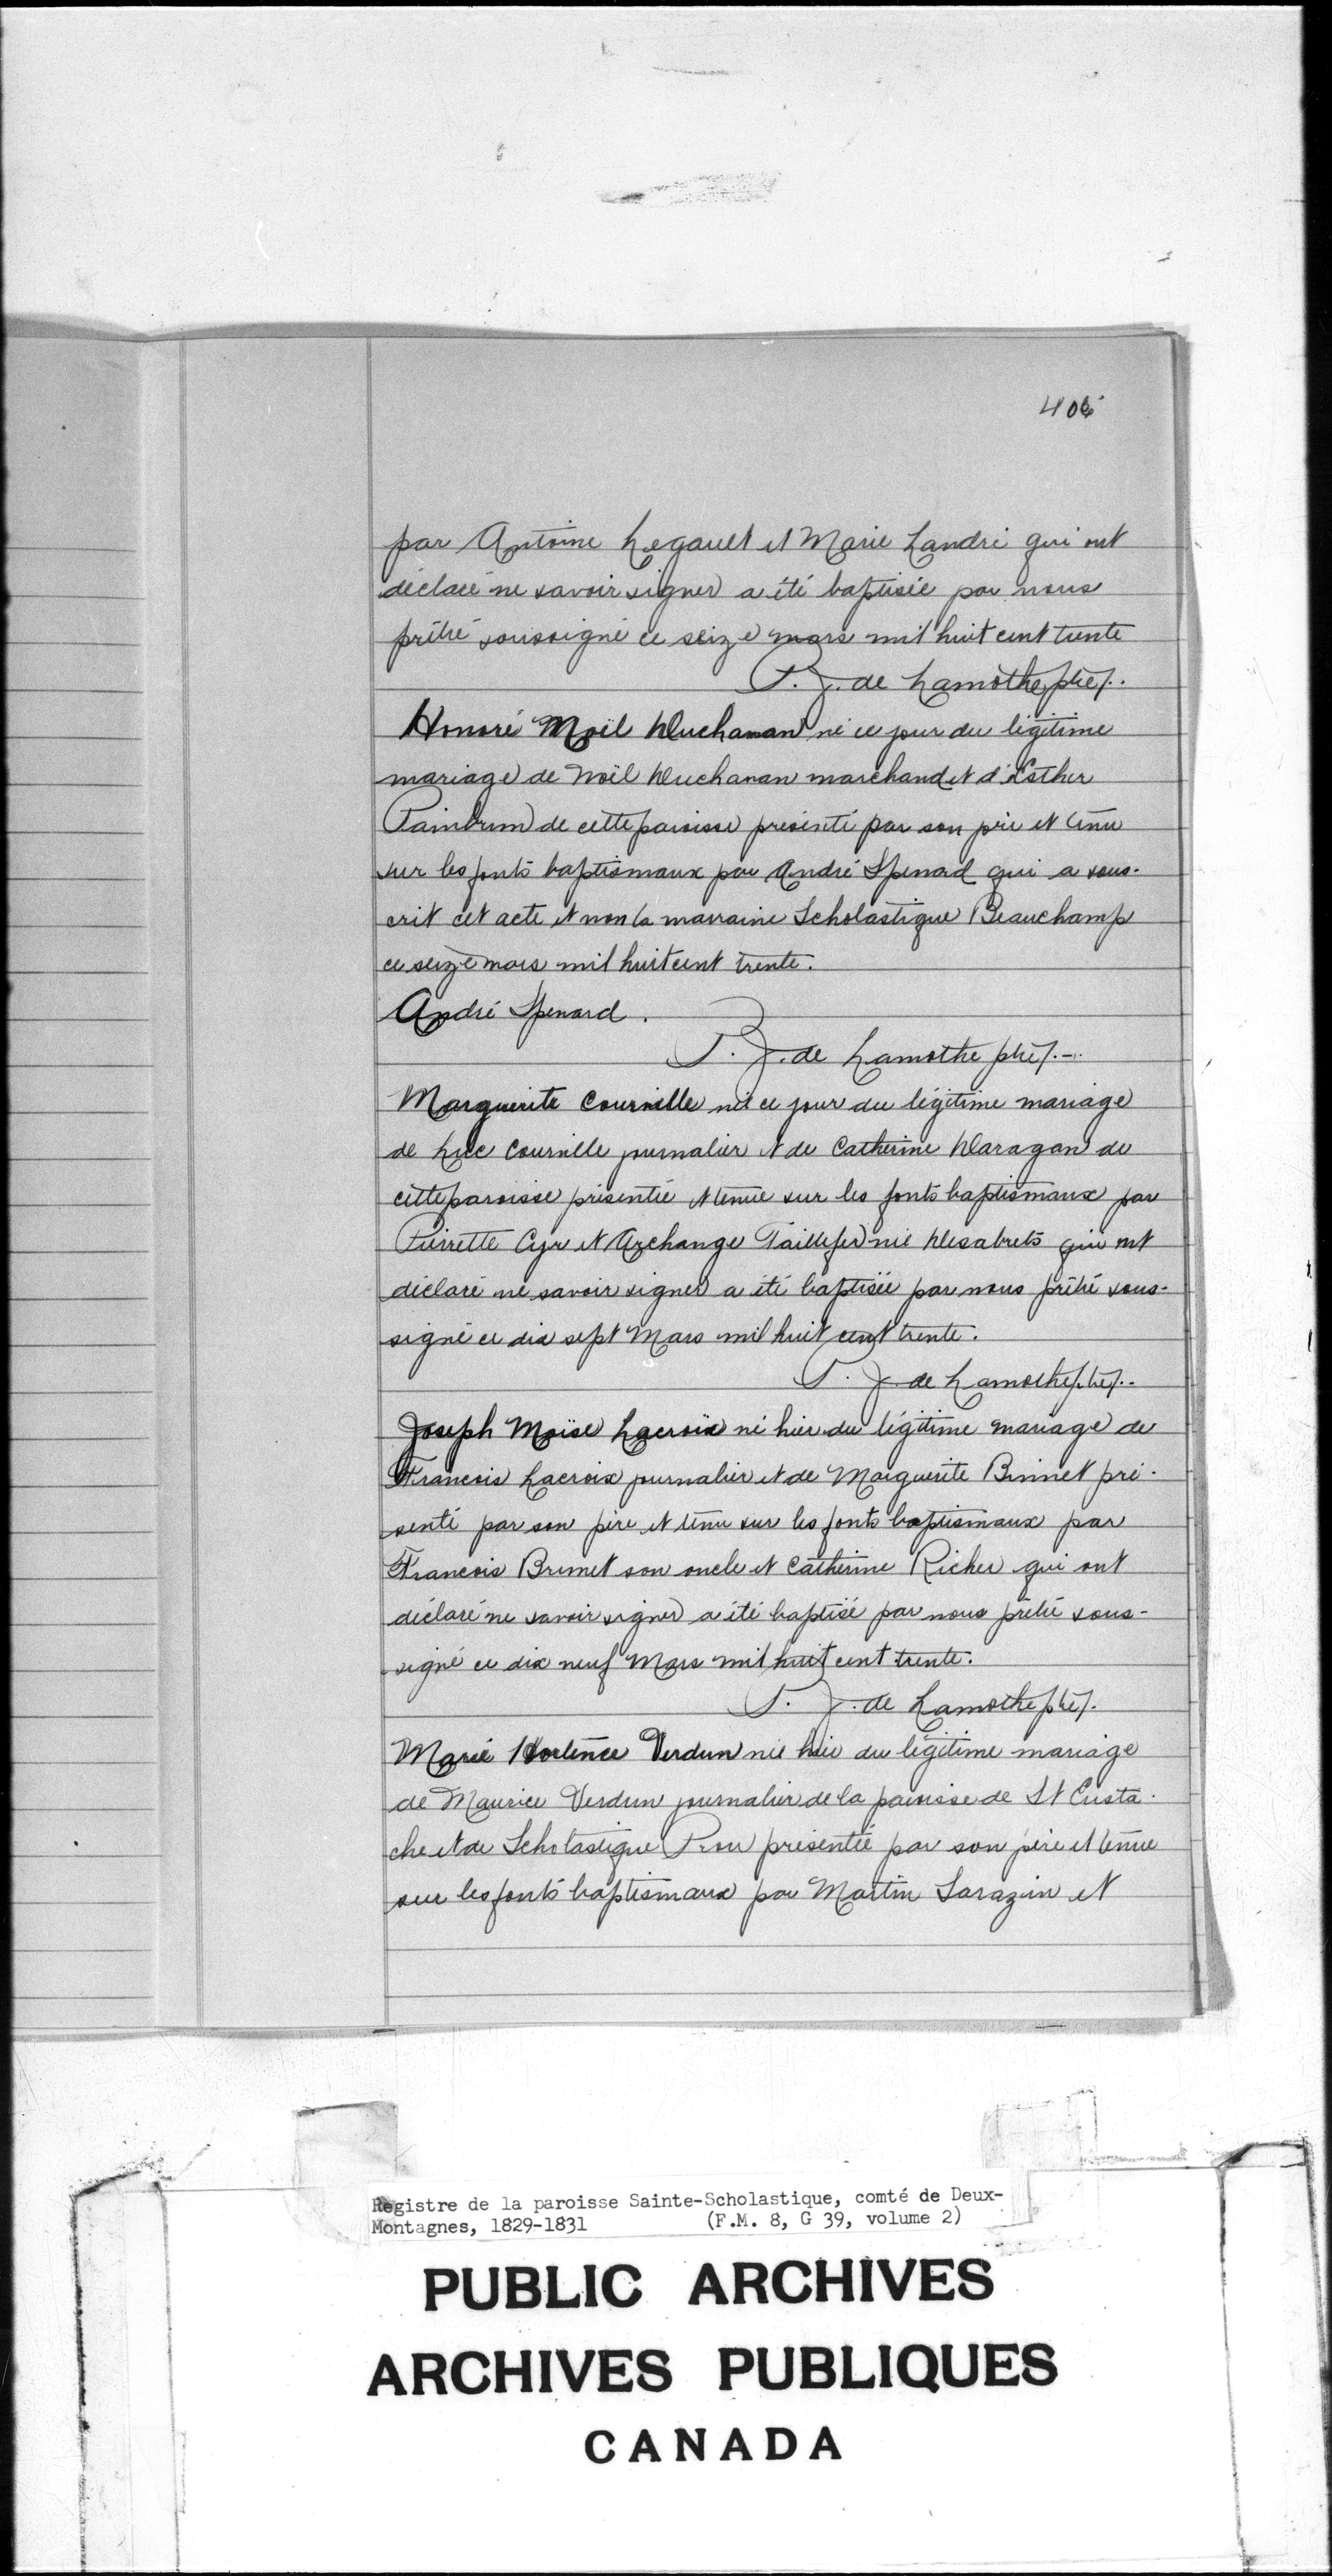 406
par Antoine Legault et Marie Landri qui ont
déclaré ne savoir signer a été baptisée par nous
prêtre soussigné ce seize mars mil huit cent trente
P. J. de Lamothe, ptre/.
Honoré Noël Duchaman né ce jour du légitime
mariage de Noël Duchaman marchand et d'Esther
Pambrum de cette paroisse présenté par son père et tenu
sur les fonts baptismaux par André Spenard qui a sous-
crit cet acte et non la marraine Scholastique Beauchamp
ce seize mars mil huit cent trente.
André Spenard.
P. J. de Lamothe ptre/.-.
Marguerite Courville née ce jour du légitime mariage
de Luc Courville journalier et de Catherine Daragan de
cette paroisse présentée et tenue sur les fonts baptismaux par
Pierrette Cyr et Archange Taillefer née Desabrets qui ont
déclaré ne savoir signer a été baptisée par nous prêtre sous-
signé ce dix sept Mars mil huit cent trente.
P. J. de Lamothe ptre/.-
Joseph Moïse Lacroix né hier du légitime mariage de
Francois Lacroix journalier et de Marguerite Brunet pré-
senté par son père et tenu sur les fonts baptismaux par
Francois Brunet son oncle et Catherine Richer qui ont
déclaré ne savoir signer a été baptisé par nous prêtre sous-
signé ce dix neuf Mars mil huit cent trente.
P. J. de Lamothe ptre/.
Marie Hortence Verdun née hier du légitime mariage
de Maurice Verdun journalier de la paroisse de St Eusta-
che et de Scholastique Prou présentée par son père et tenue
sur les fonts baptismaux par Martin Sarazin et
Registre de la paroisse Sainte-Scholastique, comté de Deux-
Montagnes, 1829-1831 (F.M. 8, G 39, volume 2)
PUBLIC ARCHIVES
ARCHIVES PUBLIQUES
CANADA